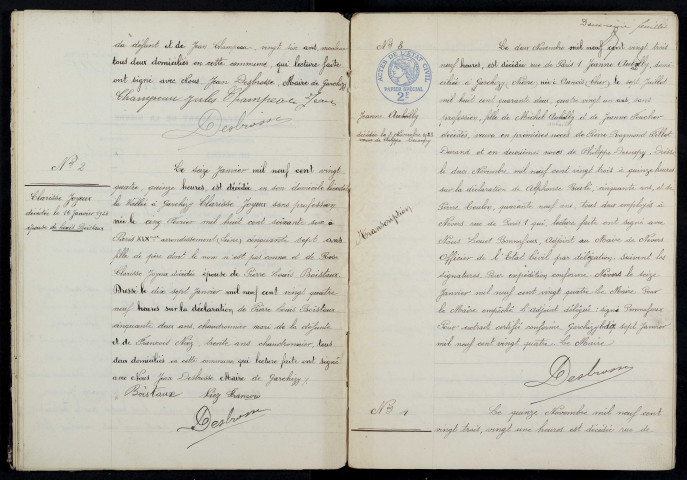 du défunt et de Jean Champeau, vingt six ans, meunier
tous deux domiciliés en cette commune, qui lecture faite
ont signé avec Nous, Jean Desbrosse, Maire de Garchizy
Champeau Jules Champeau Jean
Desbrosse
N° 2
Clarisse Joyeux
décédée le 16 Janvier 1924
épouse de Louis Boistaux
Le seize Janvier mil neuf cent vingt
quatre, quinze heures, est décédée, en son domicile
à Garchizy Clarisse Joyeux sans profession
née le cinq Février mil huit cent soixante six à
Paris XIXme arrondissement (Seine) cinquante sept ans
fille de père dont le nom n'est pas connu et de Rose
Clarisse Joyeux décédée épouse de Pierre Louis Boistaux.
Dressé le dix sept Janvier mil neuf cent vingt quatre
neuf heures sur la déclaration de Pierre Louis Boistaux
cinquante deux ans, chaudronnier mari de la défunte
et de François Niez, trente ans chaudronnier, tous
deux domiciliés en cette commune, qui lecture faite ont signé
avec Nous Jean Desbrosse Maire de Garchizy :
Boistaux Niez François
Desbrosse
feuillet
N° 3
ACTES DE L'ETAT CIVIL
PAPIER SPECIAL
2F
Jeanne Aubailly
décédée le 2 Novembre 1923
veuve de Philippe
Transcription
Le deux Novembre mil neuf cent vingt trois
neuf heures, est décédée rue de Jeanne Aubailly,
à Garchizy, Nièvre, née à (Cher) le sept Juillet
mil huit cent quarante deux, quatre vingt un ans, sans
profession, fille de Michel Aubailly et de Jeanne
décédés, veuve en premières noces de Pierre
Durand et en deuxièmes noces de Philippe Dressé
le deux Novembre mil neuf cent vingt trois à quinze heures
sur la déclaration de Alphonse cinquante ans, et de
Pierre quarante neuf ans, tous deux employés à
Nevers rue de qui lecture faite ont signé avec
Nous Adjoint au Maire de Nevers
Officier de l'Etat Civil par délégation, suivent les
signatures. Pour expédition conforme Nevers le seize
Janvier mil neuf cent vingt quatre Le Maire. Pour
le Maire empêché l'adjoint délégué : signé
Pour extrait certifié conforme, Garchizy le dix sept Janvier
mil neuf cent vingt quatre. Le Maire
Desbrosse
N° 4
Le quinze Novembre mil neuf cent
vingt trois, vingt une heures est décédée rue de